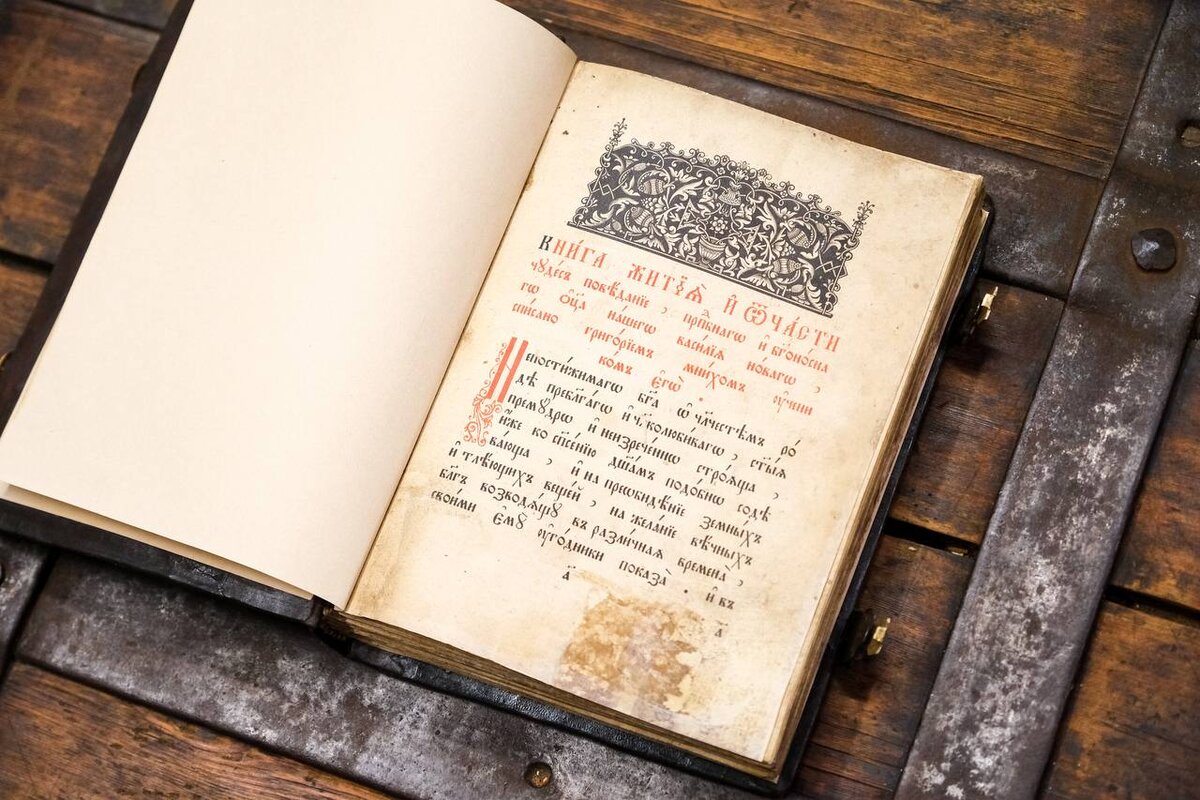 Кни́га жития̀ и҆ ѿча́сти
чꙋде́съ повѣ́данїе, препⷣбнагѡ и҆ бг҃оно́сна
гѡ ѻ҆ц҃а̀ на́шегѡ васи́лїѧ но́вагѡ,
спи́сано григо́рїемъ мни́хомъ ᲂу҆чени
ко́мъ є҆гѡ̀.
Непости́жимагѡ бг҃а ѡ҆ чл҃честѣмъ ро́
дѣ пребл҃га́гѡ и҆ чл҃колюби́вагѡ, ст҃ы́ѧ
премꙋ́дрѡ и҆ неизрече́ннѡ строѧ́ща,
и҆̀же ко сп҃се́нїю дш҃а́мъ подо́бнѡ содѣ
ва́юща, и҆ на преѡби́дѣнїе земны́хъ
и҆ тлѣ́ющихъ веще́й, на жела́нїе вѣ́чныхъ
бл҃гъ возводѧ́щꙋ въ разли́чнаѧ времена̀,
свои́ми є҆мꙋ̀ ᲂу҆го́дники показа̀. и҆ въ
а҃
а҃